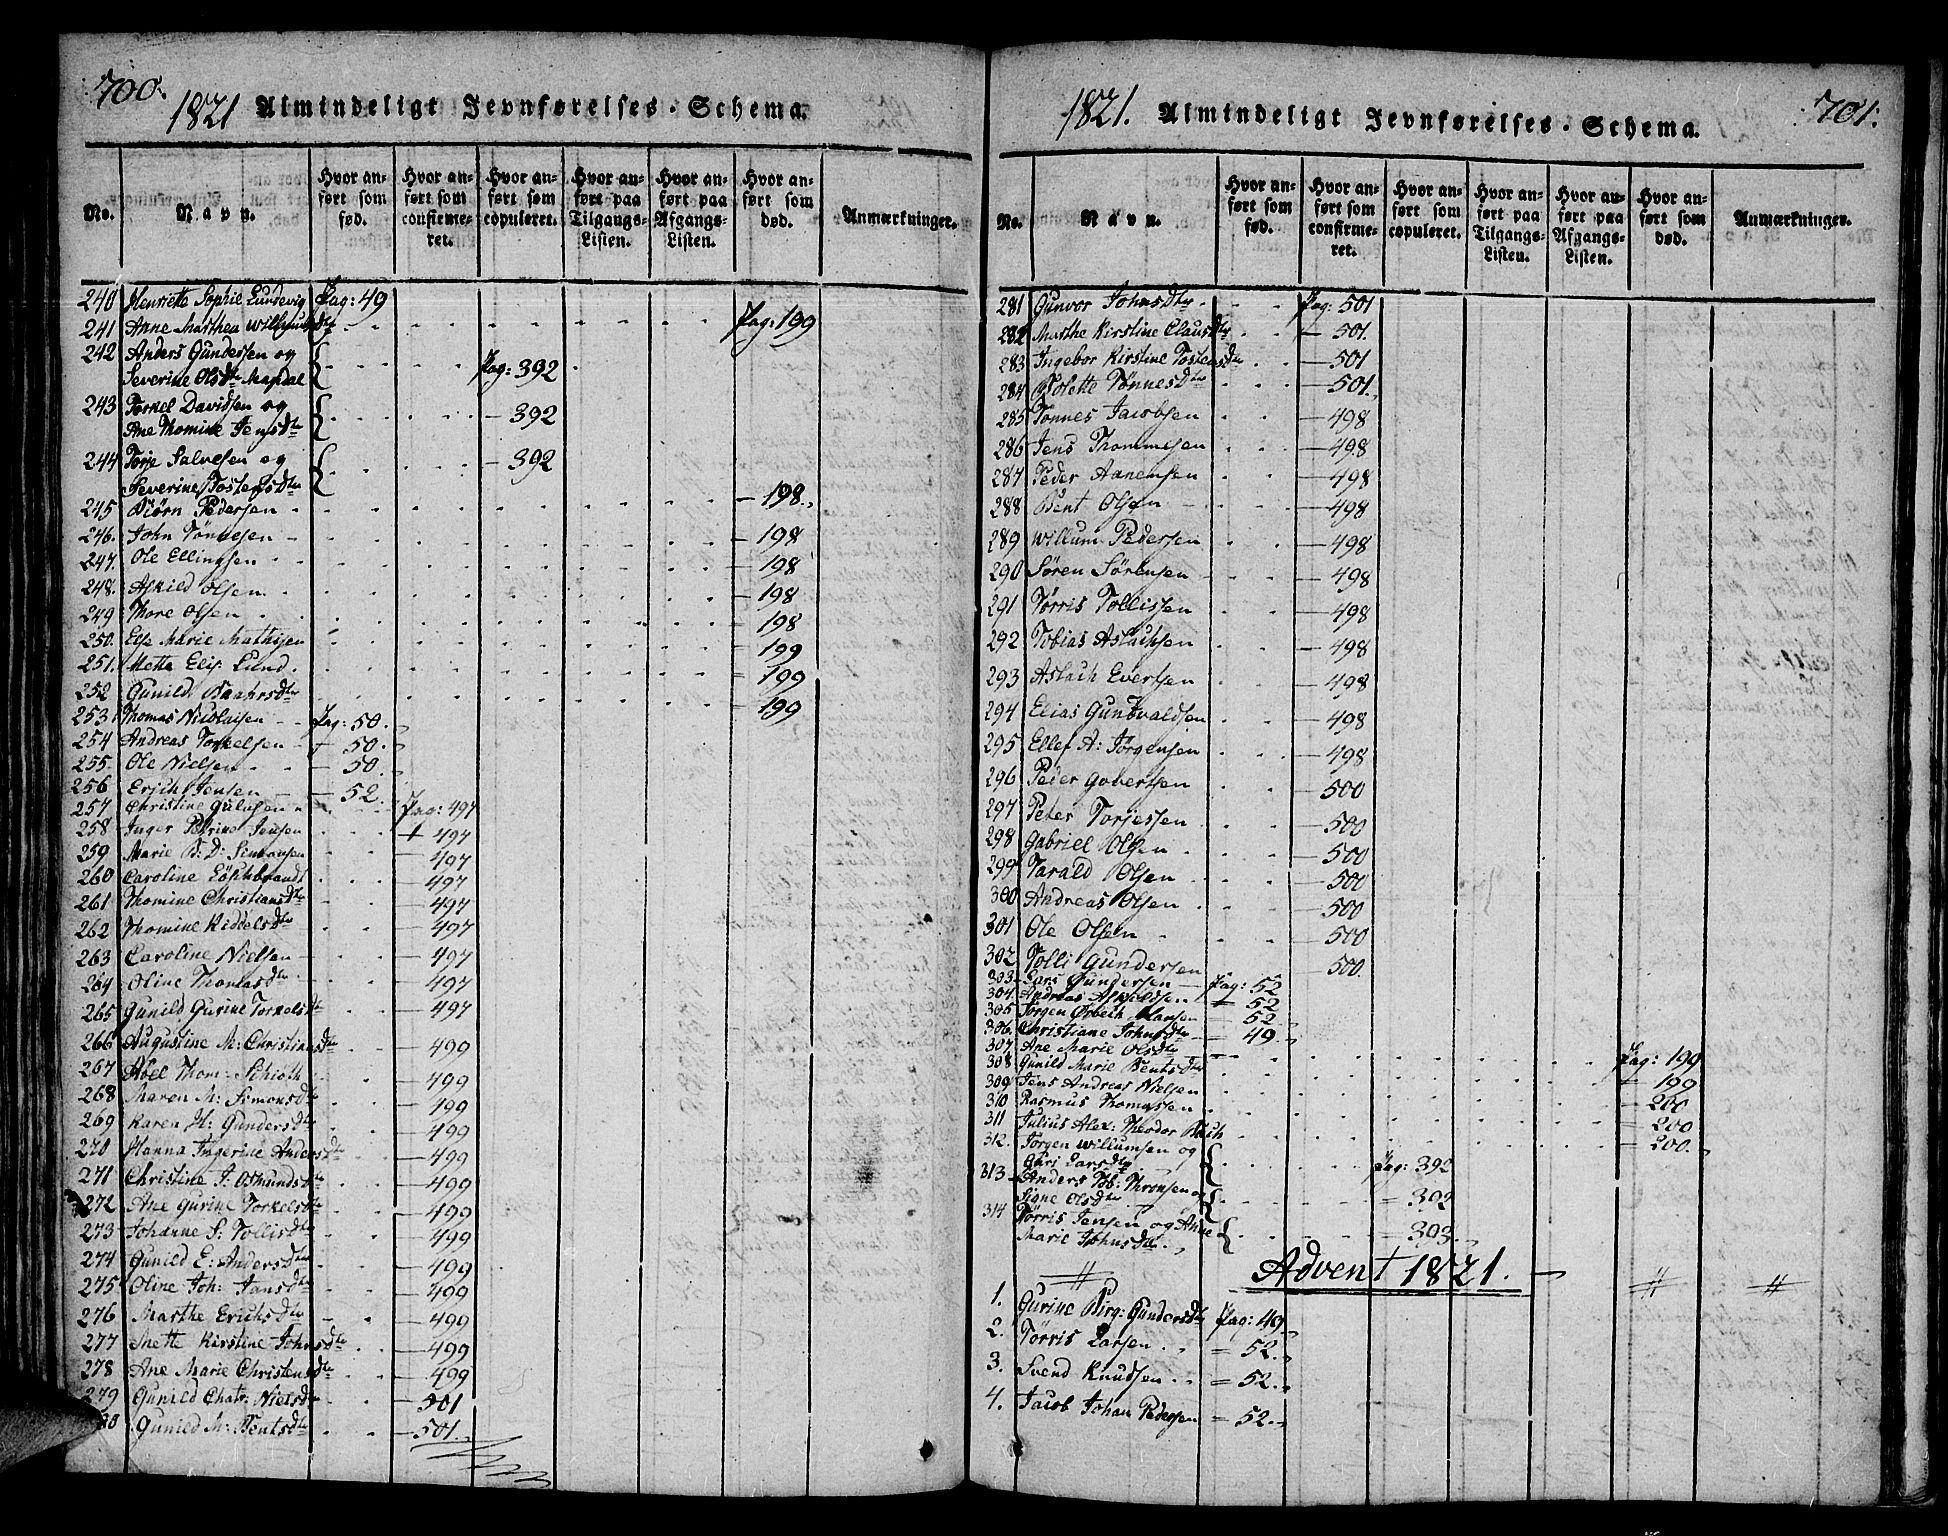 700.
1821 Almindeligt Jevnførelses-Schema.
No. Navn. Hvor anført som fød. Hvor anført som confirmeret. Hvor anført som copuleret. Hvor anført paa Tilgangs-Listen. Hvor anført paa Afgangs-Listen. Hvor anført som død. Anmærkninger.
240 Henriette Sophie Lundevig Pag: 49
241 Anne Marthea Willumsdtr Pag: 199
242 Anders Gundersen og
Severine Olsdtr Mapdal Pag: 392
243 Torkel Davidsen og
Ane Thomine Jensdtr — 392
244 Torje Salvesen og
Severine Tostensdtr — 392
245 Biörn Pedersen — 198.
246. John Tönnesen — 198
247. Ole Ellingsen — 198
248. Askild Olsen — 198
249 Thore Olsen — 198
250. Else Marie Mathisen — 199
251. Mette Elis: Lund — 199
252 Gunild Baahrsdtr — 199
253 Thomas Nicolaisen Pag: 50.
254 Andreas Torkelsen — 50.
255. Ole Nielsen — 50.
256 Erich Jensen — 52.
257 Christine Gulufsen Pag: 497
258 Inger Petrine Jensen — 497
259 Marie B: D: Simonsen — 497
260 Caroline Löschbrandt — 497
261 Thomine Christiansdtr — 497
262 Thomine Kiddelsdtr — 497
263 Caroline Nielsen — 497
264 Oline Thomasdtr — 497
265 Gunild Gurine Torkelsdtr — 497
266 Augustine M: Christiansdtr — 499
267 Abel Thom: Schioth — 499
268 Maren M: Simonsdtr — 499
269 Karen H: Gundersdtr — 499
270 Hanna Ingerine Andersdtr — 499
271 Christine J: Osmundsdtr — 499
272 Ane Gurine Torkelsdtr — 499
273 Johanne S: Tollisdtr — 499
274 Gunild E: Andersdtr — 499
275 Oline Joh: Jansdtr — 499
276 Marthe Erichsdtr — 499
277 Mette Kirstine Johnsdtr — 499
278 Ane Marie Christensdtr — 499
279 Gunild Chatr: Nielsdtr — 501
Gunild M: Bentsdtr — 501.
1821. Almindeligt Jevnførelses-Schema. 701.
No. Navn. Hvor anført som fød. Hvor anført som confirmeret. Hvor anført som copuleret. Hvor anført paa Tilgangs-Listen. Hvor anført paa Afgangs-Listen. Hvor anført som død. Anmærkninger.
281 Gunvor Johnsdtr Pag: 501
282 Marthe Kirstine Clausdtr — 501.
283 Ingebor Kirstine Tostensdtr — 501
284 Bolette Tönnesdtr — 501.
285 Tönnes Jacobsen — 498
286 Jens Thommesen — 498
287 Peder Aanensen — 498
288 Bent Olsen — 498
289 Willum Pedersen — 498
290 Sören Sörensen — 498
291 Törris Tollissen — 498
292 Tobias Aslachsen — 498
293 Aslach Evertsen — 498
294 Elias Guntvaldsen — 498
295 Ellef A: Jörgensen — 498
296 Peder Gobertsen — 500
297 Peter Torjessen — 500
298 Gabriel Olsen — 500
299 Tarald Olsen — 500
300 Andreas Olsen — 500
301 Ole Olsen — 500
302 Tolli Gundersen — 500.
303 Lars Gundersen Pag: 52
304 Andreas Askildsen — 52
305 Jörgen Örbech Hansen — 52
306. Christiane Johnsdtr — 49.
307 Ane Marie Olsdtr Pag: 199
308 Gunild Marie Bentsdtr — 199
309 Jens Andreas Nielsen — 200
310 Rasmus Thomassen — 200
311 Julius Alex: Theodor Bach — 200.
312. Jörgen Willumsen og
Guri Larsdtr Pag: 392
313 Anders Tob: Thronsen og
Signe Olsdtr = 392
314 Törris Jensen og Anne
Marie Johnsdtr = 393.
Advent 1821.
1. Gurine Birg: Gundersdtr Pag: 49.
2. Törris Larsen = 52.
3. Svend Knudsen = 52.
4. Jacob Johan Pedersen = 52.